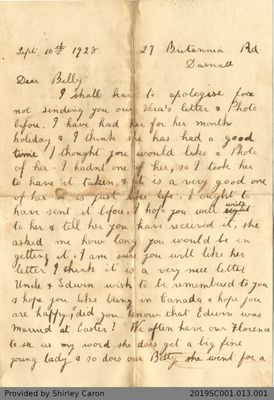 Sept. 10th 1928 27 Britannia Rd
Darnall
Dear Billy
I shall have to apologise for
not sending you our Vera's letter & Photo
before. I have had her for her month
holiday & I think she has had a good
time I thought you would like a Photo
of her. I hadnt one of her, so I took her
to have it taken, & it is a very good one
of her it is just like life. I ought to
have sent it before. I hope you will write
to her & tell her you have received it, she
asked me how long you would be in
getting it, I am sure you will like her
letter I think it is a very nice letter
Uncle & Edwin wish to be remembered to you
& hope you like being in Canada & hope you
are happy, did you know that Edwin was
married at Easter? We often have our Florence
to see us my word she does get a big fine
young lady & so does our Betty she went for a
Provided by Shirley Caron 2019SC001.013.001